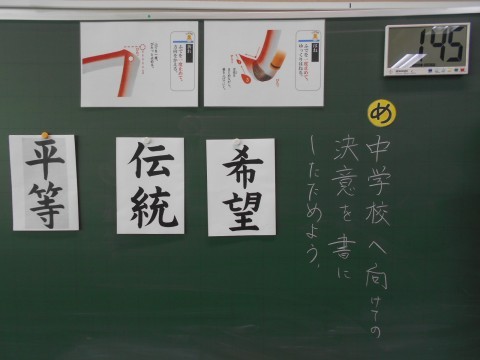 め
中学校へ向けての
決意を書に
したためよう。
希望
伝統
平等